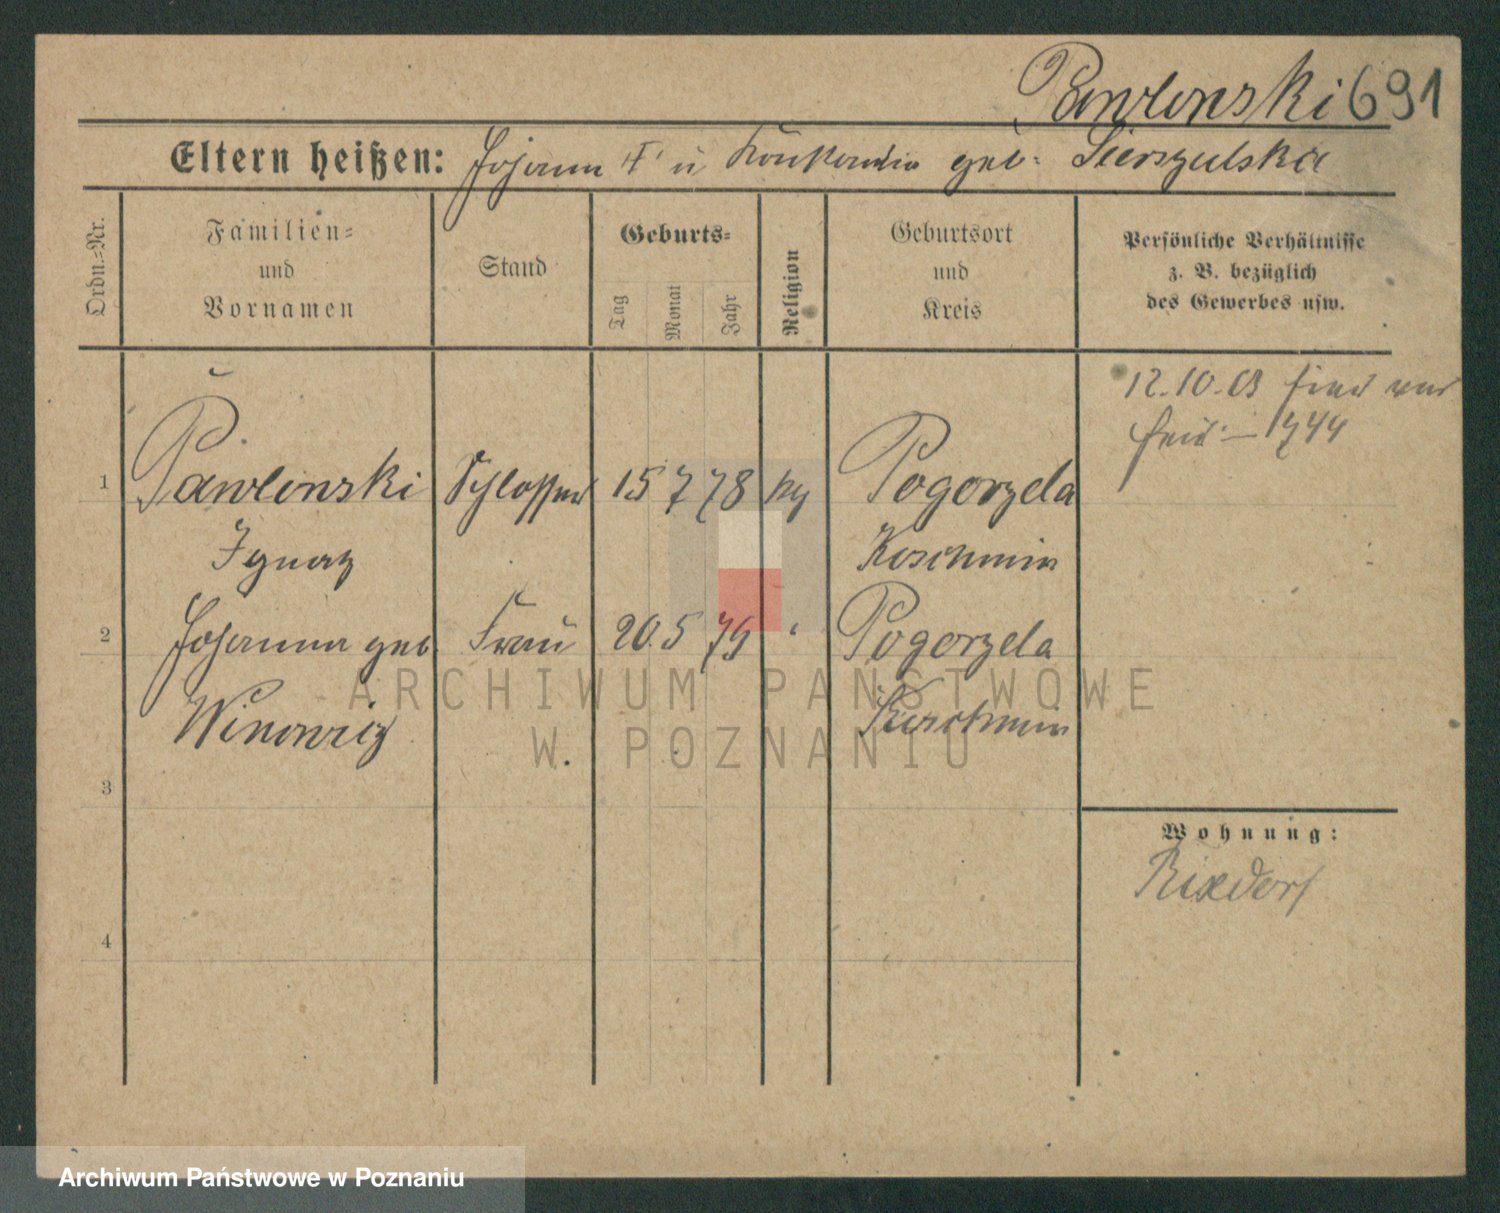 Pawlonski 691
Eltern heißen: Johann † u geb. Sierszulska
Ordn.=Nr.
Familien=
und
Vornamen
Stand
Geburts=
Tag
Monat
Jahr
Religion
Geburtsort
und
Kreis
Persönliche Verhältnisse
z. B. bezüglich
des Gewerbes usw.
12.10.03
1744
1 Pawlonski Schlosser 15 7 78 Pogorzela
Ignatz Koschmin
2 Johanna geb. Frau 20. 5 79 " Pogorzela
Koschmin
3
Wohnung:
Rixdorf
4
ARCHIWUM PAŃSTWOWE
W POZNANIU
Archiwum Państwowe w Poznaniu